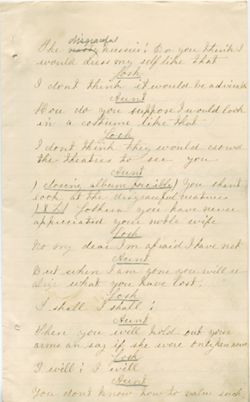 disgraceful
The hussies! Do you think I
would dress my self like that
Josh
I dont think it would be advised
Aunt
How do you suppose I would look
in a costume like that
Josh
I dont think they would crowd
the theatres to see you
Aunt
(closing album forcibly) You shant
look at the disgraceful creatures
Joshua you have never
appreciated your noble wife
Josh
No my dear I'm afraid I have not
Aunt
But when I am gone you will re
alize what you have lost.
Josh
I shall I shall!
Aunt
When you will hold out your
arms an say if she were only here now
Josh
I will! I will
Aunt
You don't know how to value such